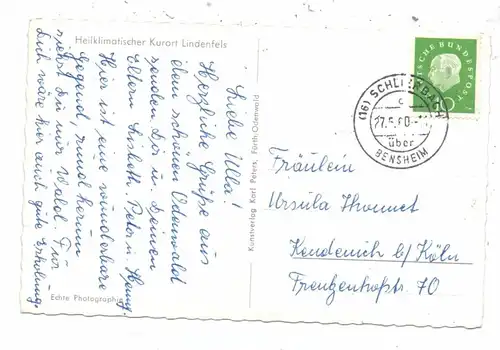 Heilklimatischer Kurort Lindenfels
Liebe Ulla!
Herzliche Grüße aus
dem schönen Odenwald
senden Dir u. Deinen
Eltern Lisbeth, Peter u. Hermg.
Hier ist eine wunderbare
Gegend, rund herum
siehst Du nur Wald. Für
Dich wäre hier auch gute Erholung.
Echte Photographie
Kunstverlag Karl Peters, Fürth-Odenwald
DEUTSCHE BUNDESPOST
(16) SCHLIERBACH
c
27.5.60
über
BENSHEIM
Fräulein
Ursula Thonnet
Kendenich b/ Köln
Frentzenhofstr. 70